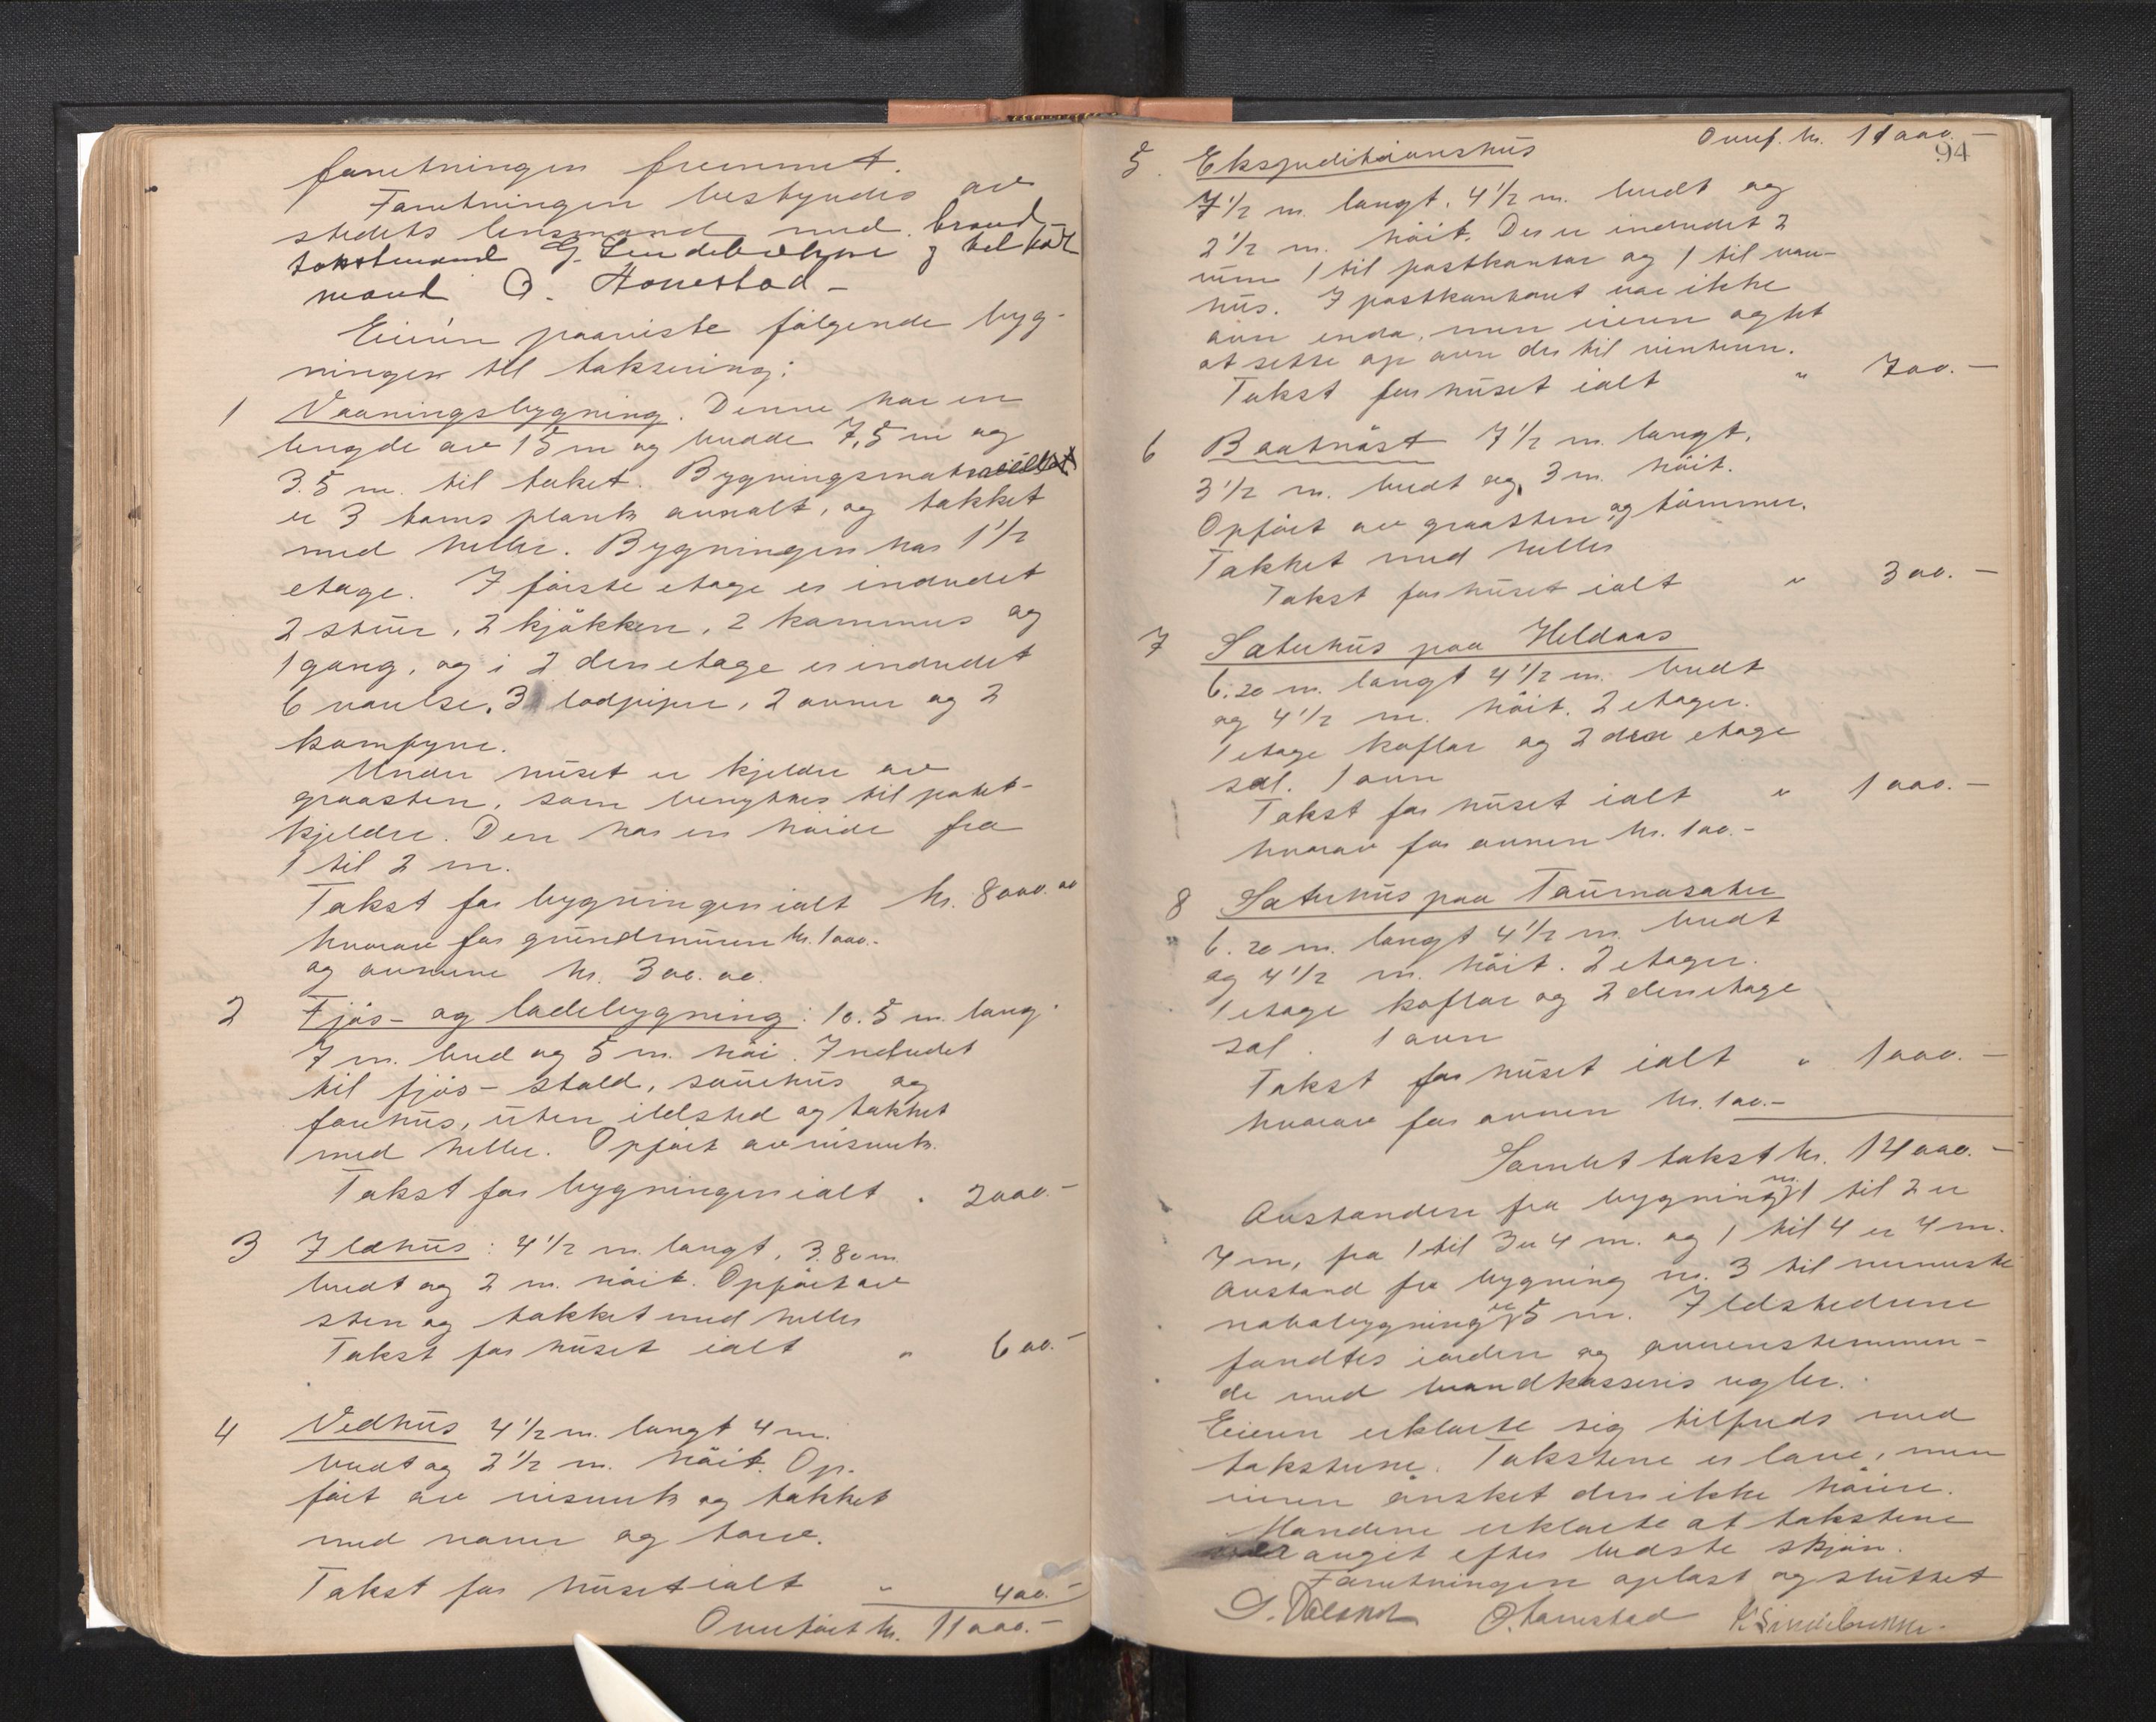 forretningen fremmet.
Forretningen bestyredes av
stedets lensmand med brand-
takstmand G. Lindebrekke og tilkalt
mand O. Hovestad -
Eieren paaviste følgende byg-
ninger til taksering:
1 Vaaningsbygning. Denne har en
lengde av 15 m og bredde 7,5 m og
3.5 m. til taket. Bygningsmaterialet
er 3 toms plank avvalt, og tækket
med heller. Bygningen har 1 1/2
etage. I første etage er indredet
2 stuer, 2 kjøkken, 2 kammers og
1 gang, og i 2 den etage er indredet
6 værelse, 3 lodpiper, 2 ovner og 2
komfyre.
Under huset er kjelder av
graasten, som benyttes til potet-
kjelder. Den har en høide fra
1 til 2 m.
Takst for bygningen ialt kr. 8000.00
hvorav for grundmuren kr. 1000.-
og ovnene kr. 300.00.
2 Fjøs- og ladebygning: 10.5 m. lang
7 m. bred og 5 m. høi. Indredet
til fjøs- stald, sauehus og
forhus, uten ildsted og tækket
med heller. Opført av
Takst for bygningen ialt " 2000.-
3 Ildhus: 4 1/2 m. langt, 3.80 m.
bredt og 2 m. høit. Opført av
sten og tækket med heller
Takst for huset ialt " 600.-
4 Vedhus 4 1/2 m. langt 4 m.
bredt og 2 1/2 m. høit. Op-
ført av og tækket
med næver og torv.
Takst for huset ialt " 400.-
Overført kr. 11000.-
Overf. kr. 11000.-
94
5. Ekspeditionshus
7 1/2 m. langt, 4 1/2 m. bredt og
2 1/2 m. høit. Der er indredet 2
rum 1 til postkontor og 1 til vare-
hus. I postkontoret var ikke
ovn enda, men eieren agtet
at sette op ovn der til vinteren.
Takst for huset ialt " 700.-
6 Baatnøst 7 1/2 m. langt,
3 1/2 m. bredt og 3 m. høit.
Opført av graasten og tømmer.
Tækket med heller
Takst for huset ialt " 300.-
7 Sæterhus paa Heldaas
6.20 m. langt 4 1/2 m. bredt
og 4 1/2 m. høit. 2 etager.
1 etage koflor og 2 den etage
sal. 1 ovn
Takst for huset ialt " 1000.-
hvorav for ovnen kr. 100.-
8 Sæterhus paa Taumasæter
6.20 m. langt 4 1/2 m. bredt
og 4 1/2 m. høit. 2 etager.
1 etage koflor og 2 den etage
sal. 1 ovn
Takst for huset ialt " 1000.-
hvorav for ovnen kr. 100.-
Samlet takst kr. 14000.-
Avstanden fra bygning nr. 1 til 2 er
7 m, fra 1 til 3 er 4 m. og 1 til 4 er 4 m.
Avstand fra bygning nr. 3 til nærmeste
nabobygning er 5 m. Ildstedrene
fandtes iorden og overenstemmen-
de med brandkassens regler.
Eieren erklærte sig tilfreds med
takstene. Takstene er lave, men
eieren ønsket den ikke høiere.
Mændene erklærte at takstene
var avgit efter bedste skjøn.
Forretningen oplæst og sluttet
O. Hovestad G Lindebrekke